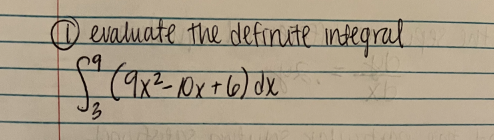 ① evaluate the definite integral
∫₃⁹ (9x²-10x+6) dx